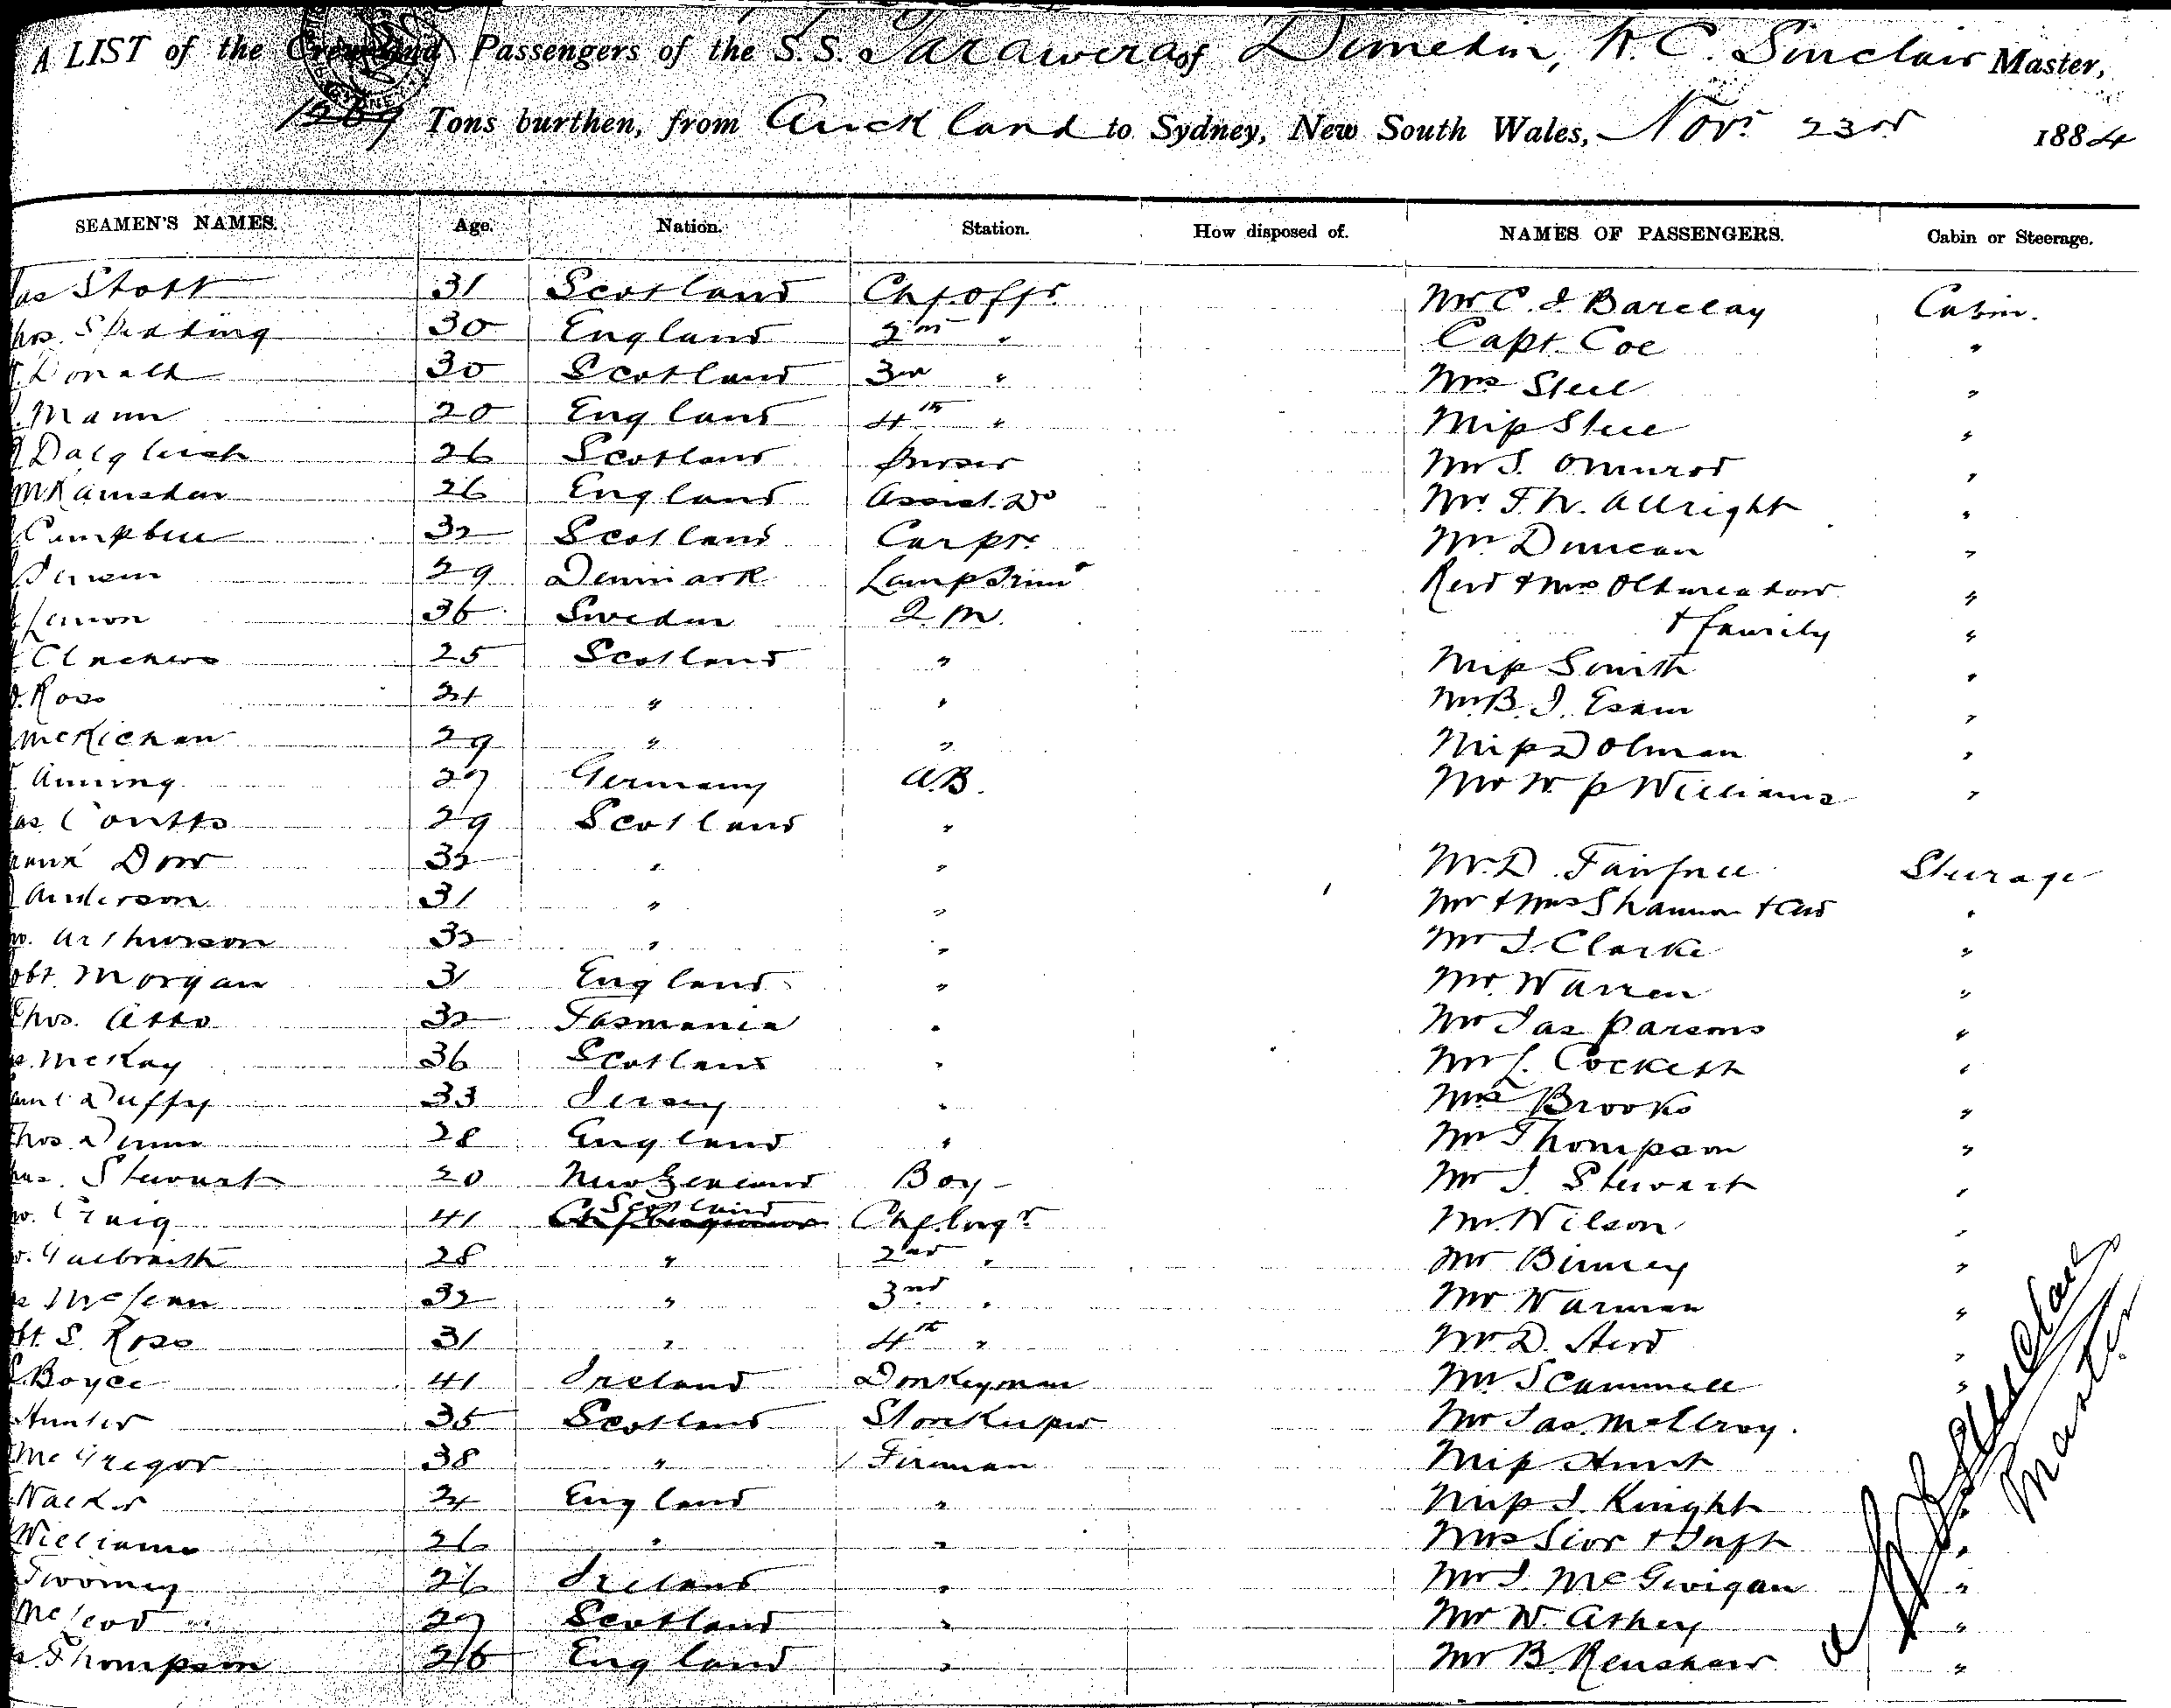 A LIST of the Crew and Passengers of the S.S. Tarawera of Dunedin, W. C. Sinclair Master,
1269 Tons burthen, from Auckland to Sydney, New South Wales, Novr 23rd 1884
SEAMEN'S NAMES. Age. Nation. Station. How disposed of. NAMES OF PASSENGERS. Cabin or Steerage.
Stott 31 Scotland Chf Offr Mr C. J. Barclay Cabin.
30 England 2nd " Capt. Coe "
Donald 30 Scotland 3rd " Mrs Steel "
Mann 20 England 4th " Miss Steel "
Dalgleish 26 Scotland Purser Mr J. Ormerod "
26 England Assist. Do Mr. F. W. Allright "
Campbell 32 Scotland Carptr Mr Duncan "
29 Denmark Lamp Trimr Revd & Mrs "
36 Sweden Q M. & family "
25 Scotland " Miss Smith "
Ross 24 " " Mr B. J. Esam "
McKichan 29 " " Miss Dolman "
Anning 27 Germany A.B. Mr W. P Williams "
Coutts 29 Scotland "
Dow 32 " " Mr. D. Steerage
Anderson 31 " " Mr & Mrs Shannon & "
Arthurson 32 " " Mr J. Clarke "
obt Morgan 31 England " Mr. Warren "
Thos. 32 Tasmania " Mr Jas Parsons "
McKay 36 Scotland " Mr L. Cockett "
Duffy 33 Jersey " Mrs Brooks "
Thos. Dunn 28 England " Mr Thompson "
Stewart 20 New Zealand Boy Mr J. Stewart "
Craig 41 Scotland Chf. Engr Mr. Wilson "
Galbraith 28 " 2nd " Mr Binney "
McLean 32 " 3rd " Mr Warman "
bt. S. Ross 31 " 4th " Mr D. "
Boyce 41 Ireland Donkeyman Mr Scammell "
Hunter 35 Scotland Storekeeper Mr Jas. McElroy. "
McGregor 38 " Fireman Miss Hunt "
24 England " Miss J. Knight "
Williams 26 " " Mrs & Inft "
Twomey 26 Ireland " Mr J. McGuigan "
McLeod 27 Scotland " Mr W. "
Thompson 26 England " Mr B. Renshaw "
W C Sinclair
Master